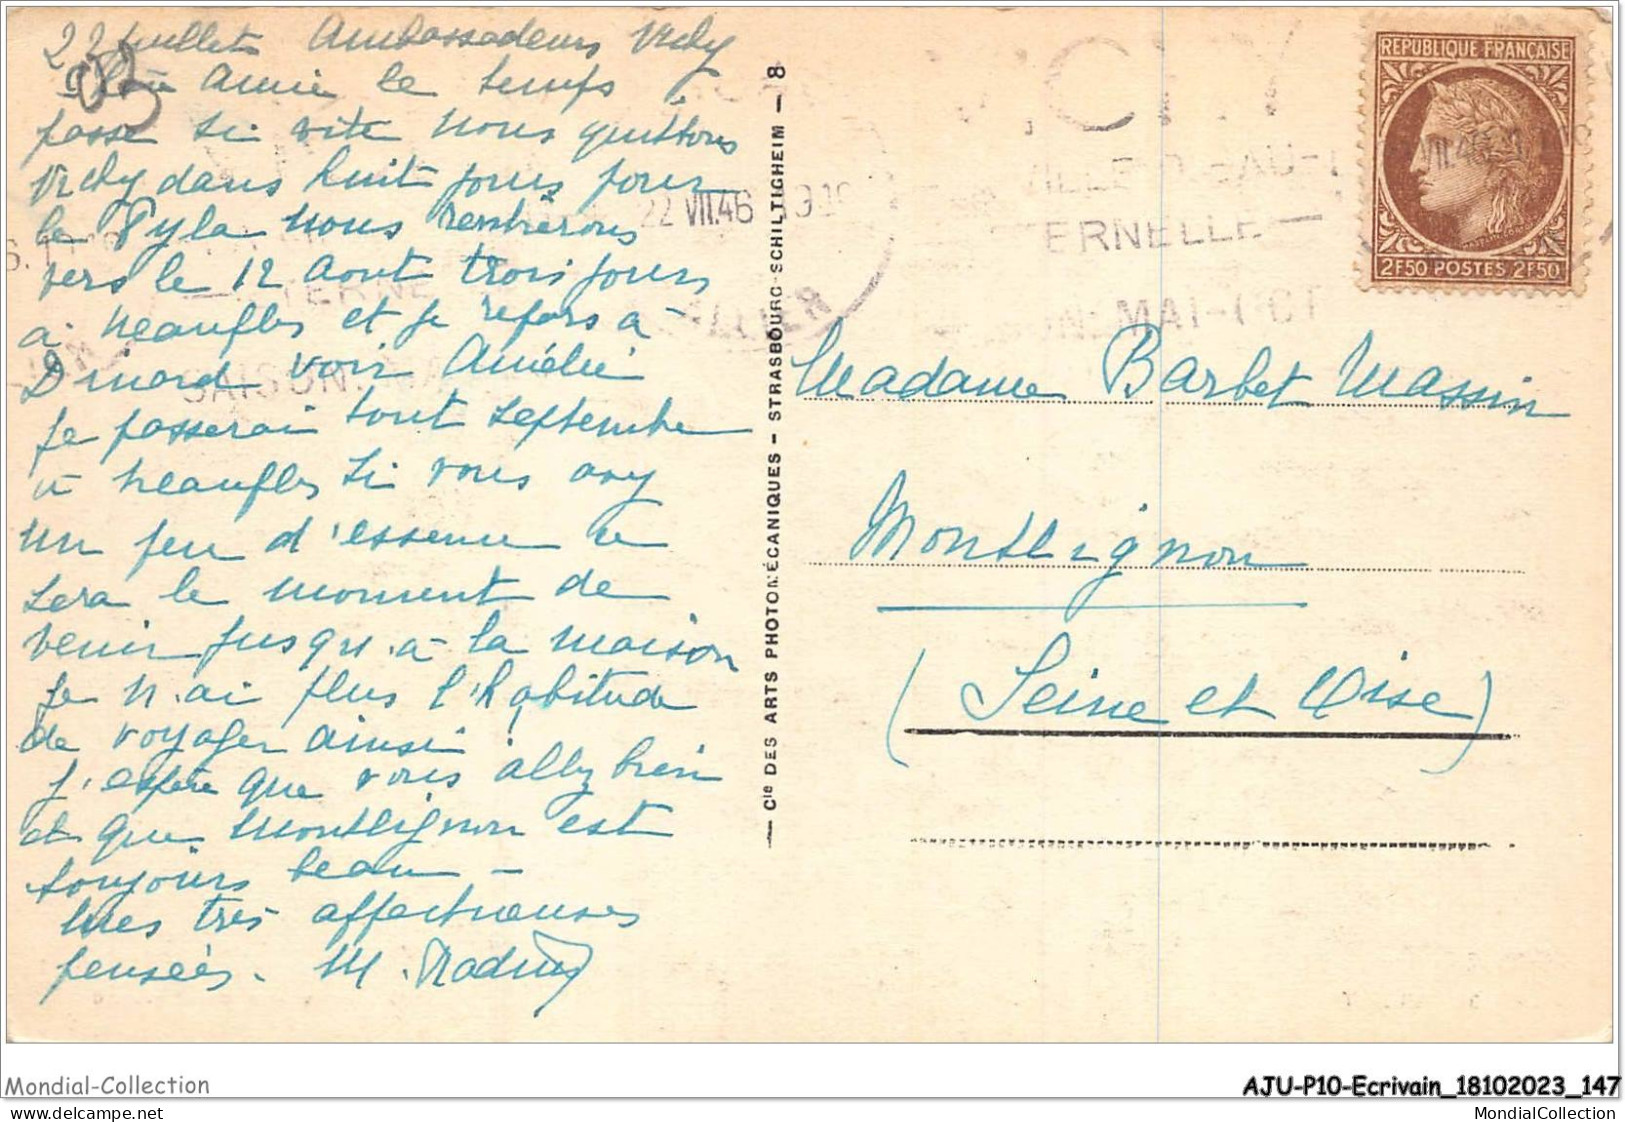 22 juillet Ambassadeurs Vichy
Chère Amie le temps
passe si vite nous quittons
Vichy dans huit jours pour
le Pyla nous rentrerons
vers le 12 Aout trois jours
à Neaufles et je repars à
Dinard voir Amélie
Je passerai tout septembre
à Neaufles si vous avez
un peu d'essence ce
sera le moment de
venir jusqu'à la maison
Je n'ai plus l'habitude
de voyager ainsi !
J'espère que vous allez bien
et que Montlignon est
toujours beau -
Mes très affectueuses
pensées. M.
— Cie DES ARTS PHOTOMÉCANIQUES - STRASBOURG-SCHILTIGHEIM — 8
22 VII.46
ALLIER
ERNELLE
MAI-OCT
SAISON
REPUBLIQUE FRANÇAISE
2F50 POSTES 2F50
Madame Barbet Massin
Montlignon
(Seine et Oise)
Mondial-Collection
AJU-P10-Ecrivain_18102023_147
www.delcampe.net
MondialCollection